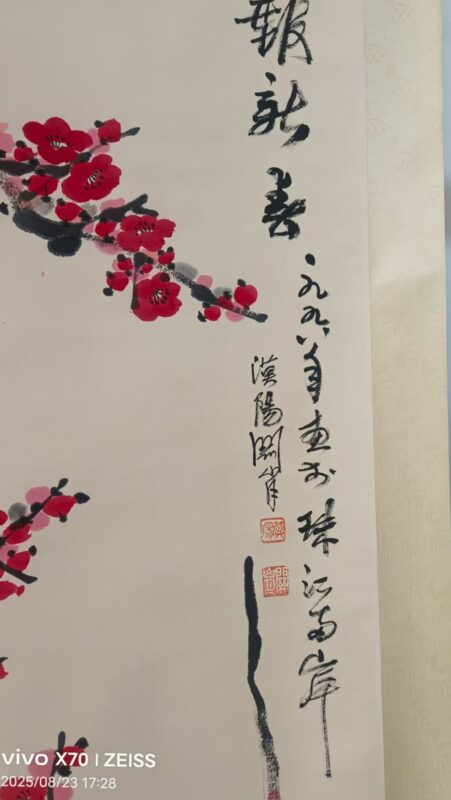 報新春
一九九八年畫於珠江南岸
漢陽關肖
vivo X70 | ZEISS
2025/08/23 17:28